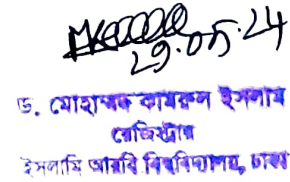 29.05.24
ড. মোহাম্মদ কামরুল ইসলাম
রেজিস্ট্রার
ইসলামি আরবি বিশ্ববিদ্যালয়, ঢাকা